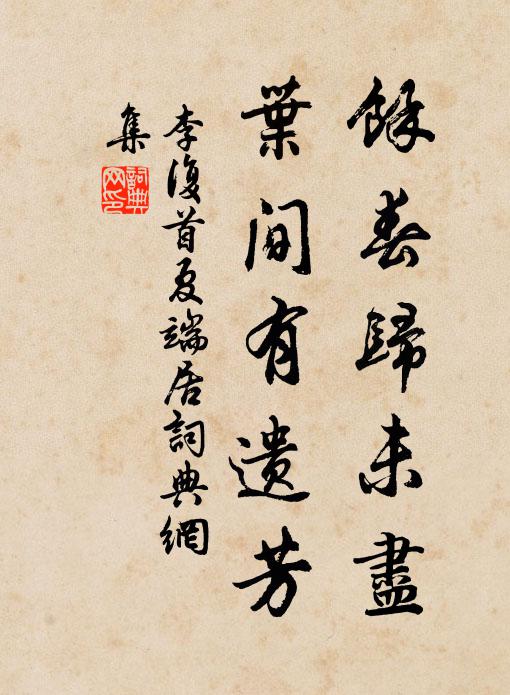 餘春歸未盡
葉間有遺芳
李復首夏端居詞典網
集
詞典
网印